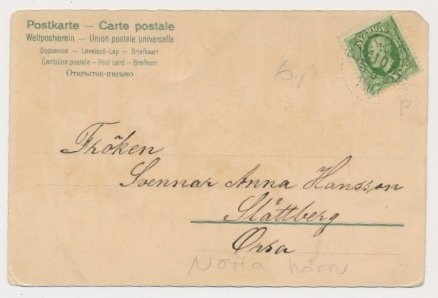 Postkarte — Carte postale
Weltpostverein — Union postale universelle
Dopisnice — Levelező-Lap — Briefkaart
Cartolina postale — Post card — Brefkort
Открытое письмо
Fröken
Svennar Anna Hansson
Slättberg
Orsa
Notta hörn
P